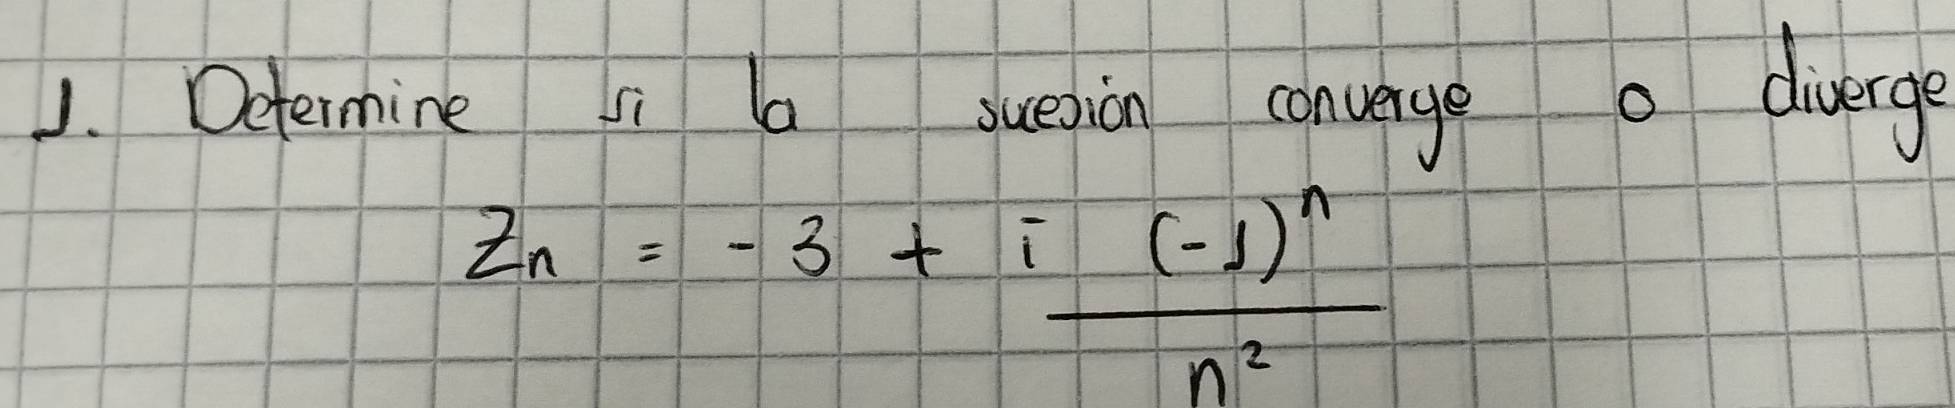 1. Determine si la sucesión converge o diverge
Zn = - 3 + i (-1)^n / n^2